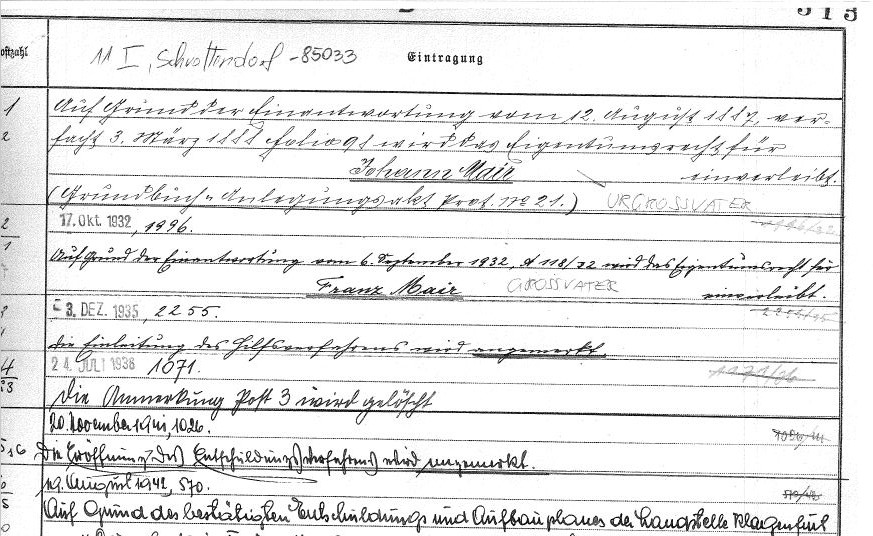 313
ostzahl
11 I, Schrottendorf -85033 Eintragung
1 Auf Grund der Einantwortung vom 12. August 1887, ver-
2 facht 3. März 1888 folio 91 wird das Eigentumsrecht für
Johann Mair einverleibt.
(Grundbuch-Anlegungsakt Prot. No 21.) URGROSSVATER
2 17. Okt 1932, 1996.
1 Auf Grund der Einantwortung vom 6. September 1932, A 118/32 wird das Eigentumsrecht für
Franz Mair GROSSVATER einverleibt.
3. DEZ. 1935, 2255.
die Einleitung des Hilfsverfahrens wird angemerkt
4 24. JULI 1936 1071.
die Anmerkung Post 3 wird gelöscht
20. November 1941, 1026. 1026/41
Die Eröffnung des Entschuldungsverfahrens wird angemerkt.
19. August 1942, 570. 570/42
Auf Grund des bestätigten Entschuldungs und Aufbauplanes der Landstelle Klagenfurt